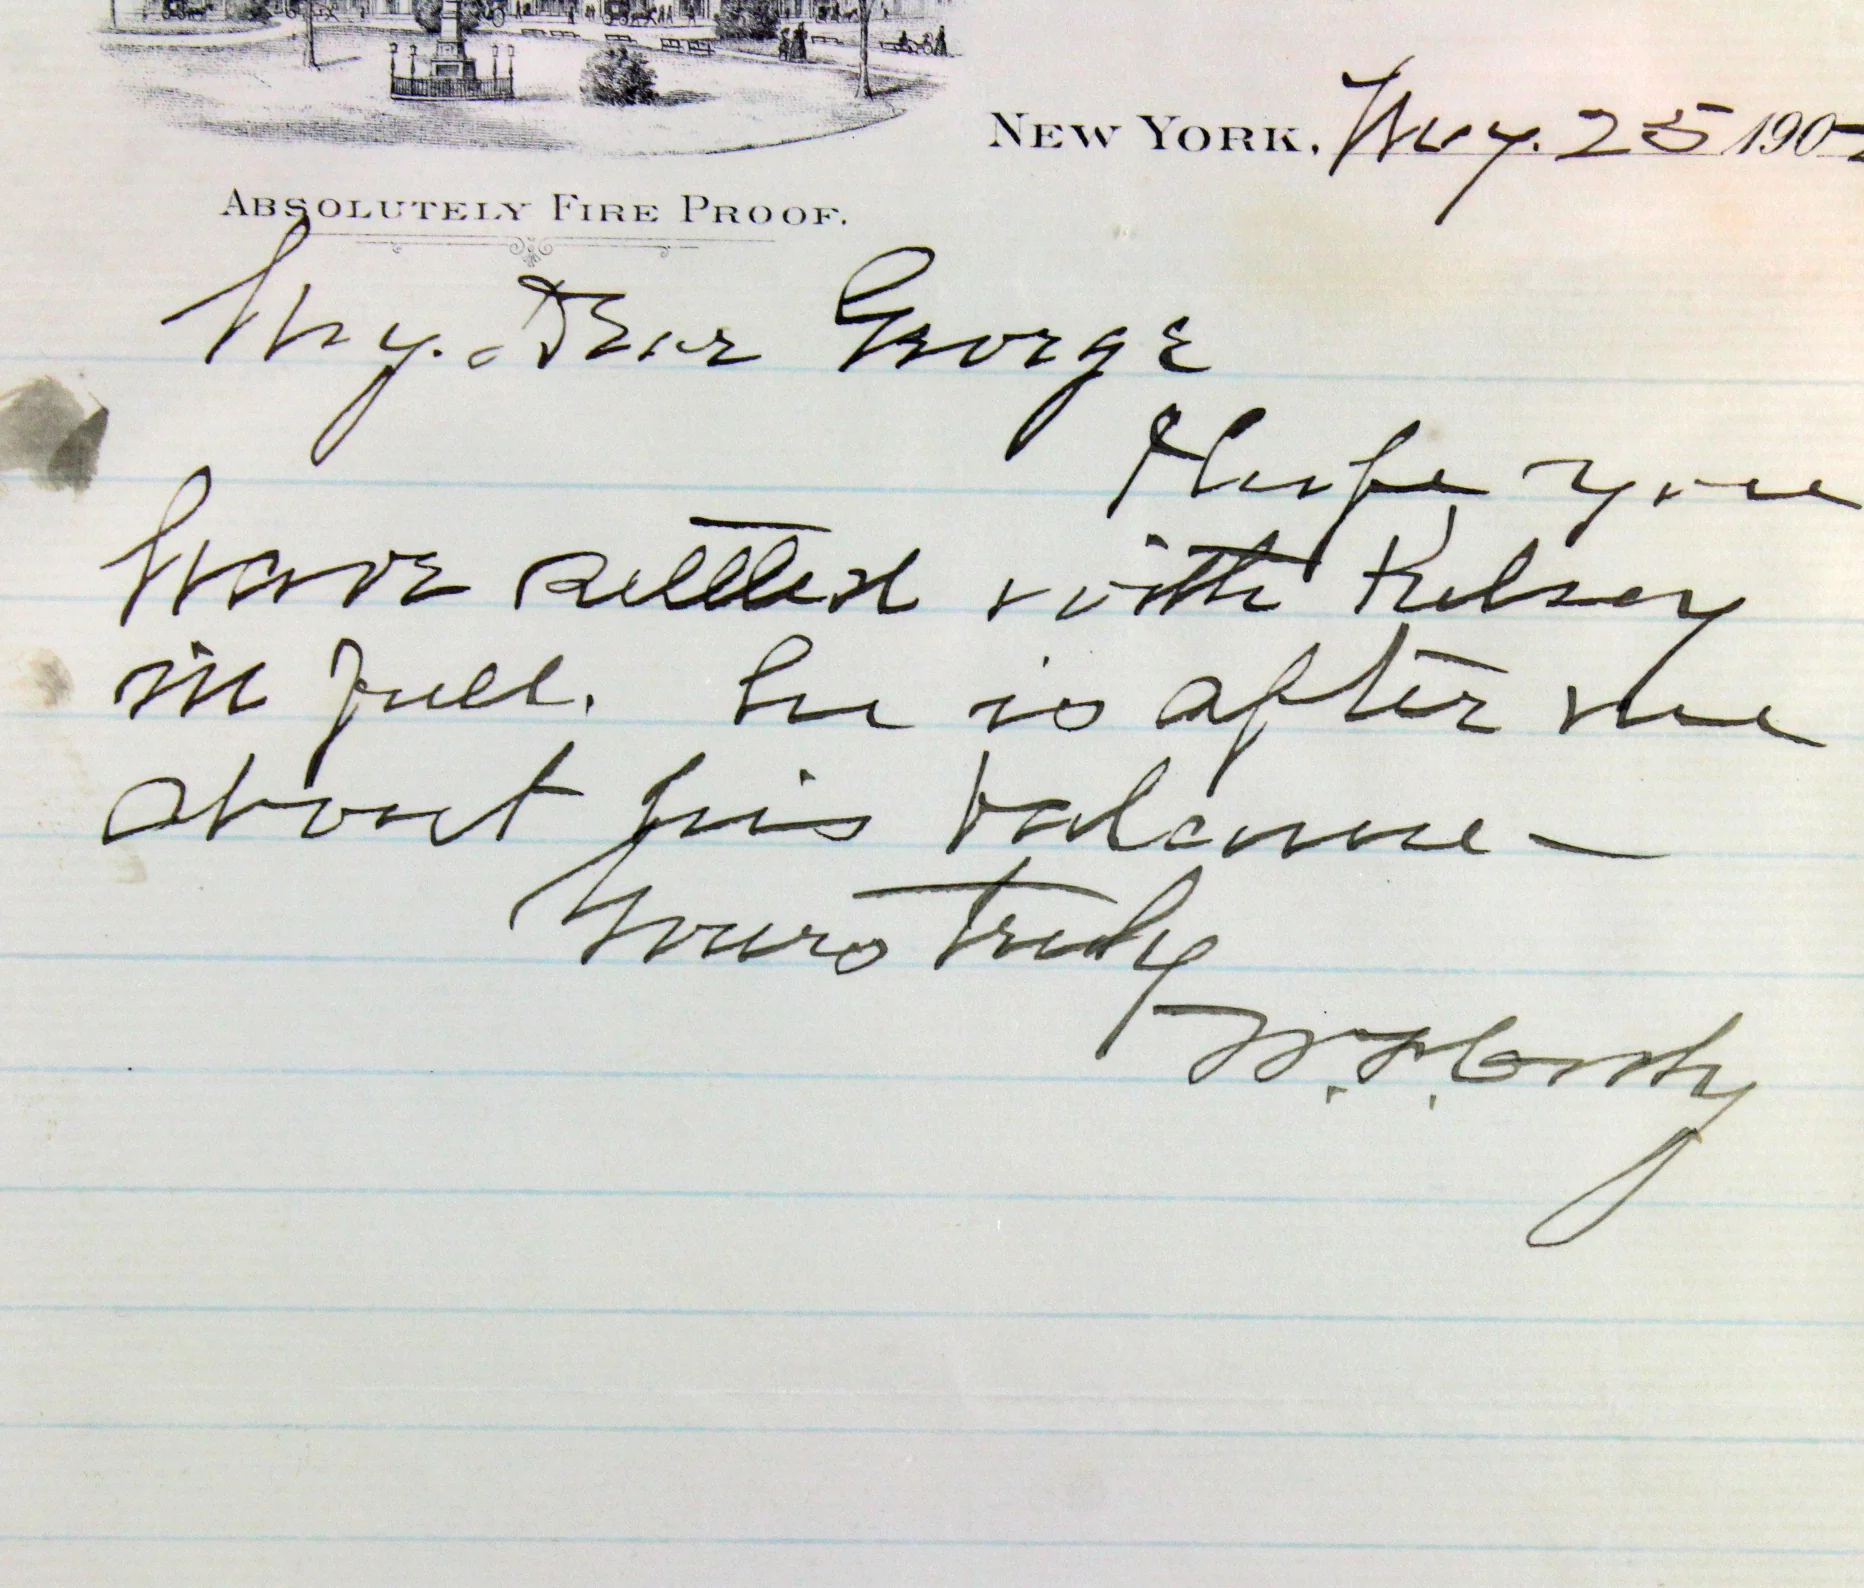 NEW YORK, May. 25 1902
ABSOLUTELY FIRE PROOF.
My. Dear George
I hope you
have settled with Kelsey
in full. he is after me
about his balance—
Yours truly
W. F. Cody